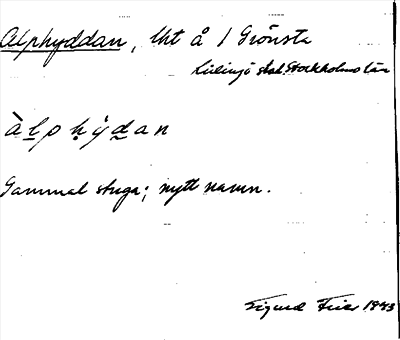 Alphyddan, lht å 1 Grönsta
Lidingö stad. Stockholms län
àlphỳdan
Gammal stuga; nytt namn.
Sigurd Fries 1943